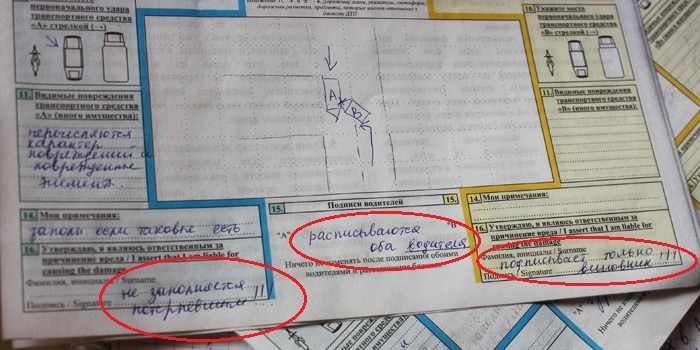 10. Укажите место
первоначального удара
транспортного средства
"В" стрелкой (→)
первоначального удара
транспортного средства
"А" стрелкой (→)
дорожная разметка, предметы, которые имеют отношение к
данному ДТП
А
В
11. Видимые повреждения
транспортного средства
"А" (иного имущества):
перечисляются
характер
повреждений и
поврежденные
элемент
11. Видимые повреждения
транспортного средства
"В" (иного имущества):
14. Мои примечания:
заполн. если таковые есть
15. Подписи водителей 15.
"А" "В"
расписываются
оба водителя
Ничего не изменять после подписания обоими
водителями и разъединения бланков
14. Мои примечания:
16. Утверждаю, я являюсь ответственным за
причинение вреда / I assert that I am liable for
causing the damage
Фамилия, инициалы / Surname
Подпись / Signature
не заполняется
потерпевшим !!
16. Утверждаю, я являюсь ответственным за
причинение вреда / I assert that I am liable for
causing the damage
Фамилия, инициалы / Surname
подписывает только
Подпись / Signature виновник !!!